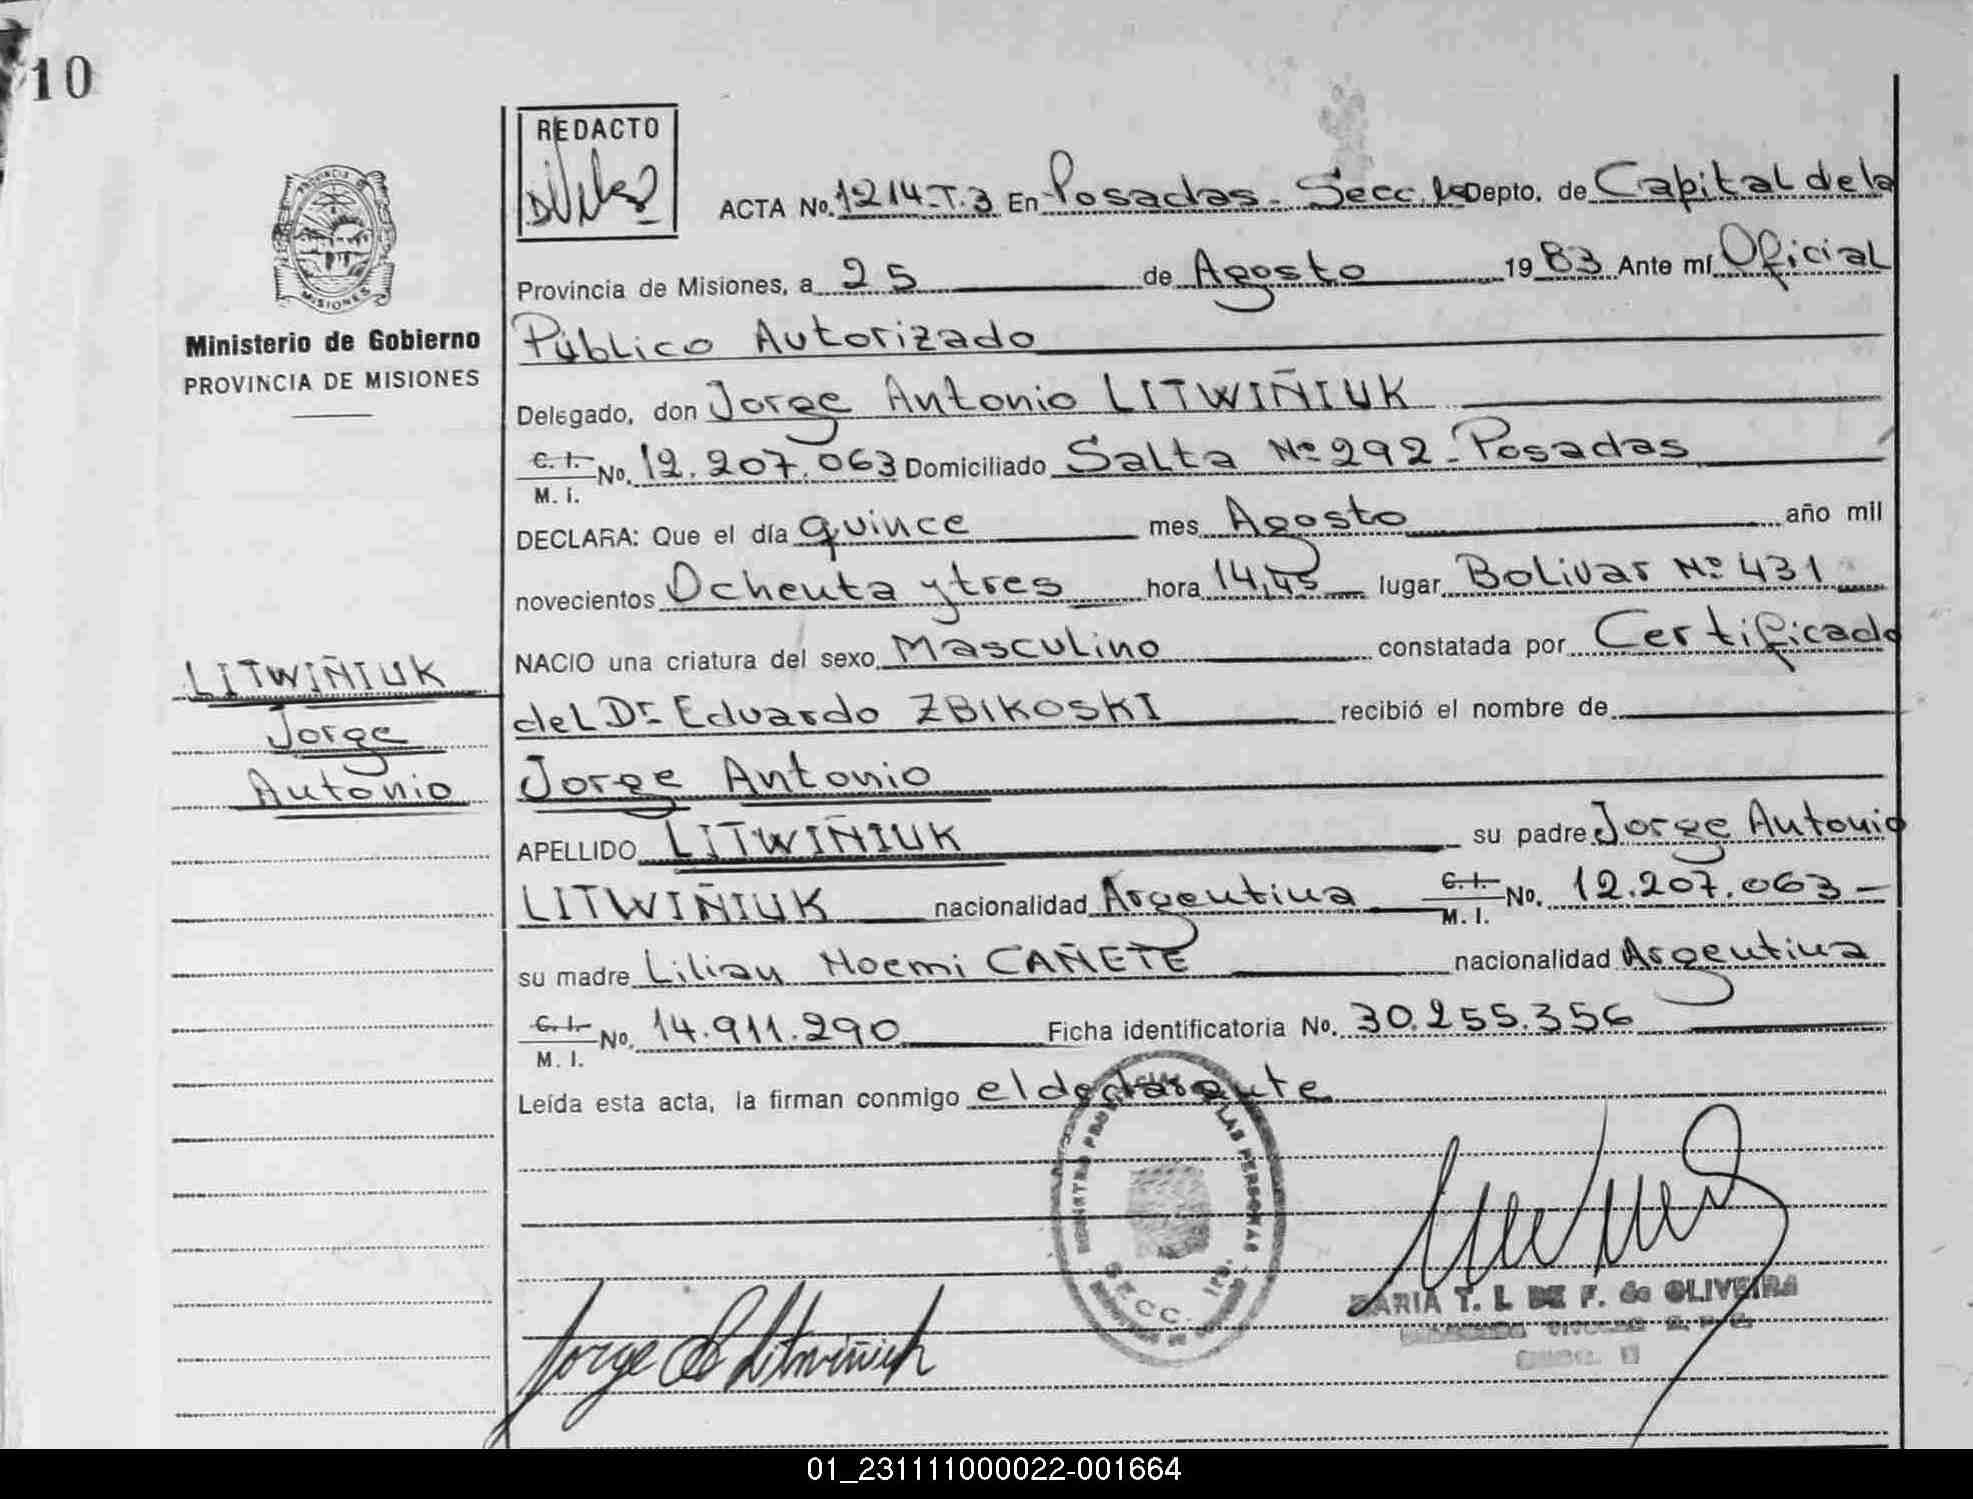 10
REDACTO
ACTA No. 1214-T.3 En Posadas - Secc. 1a Depto. de Capital de la
Provincia de Misiones, a 25 de Agosto 1983 Ante mí Oficial
Público Autorizado
Delegado, don Jorge Antonio LITWIÑIUK
C. I. No. 12.207.063 Domiciliado Salta Nº 292 - Posadas
M. I.
DECLARA: Que el día quince mes Agosto año mil
novecientos Ochenta y tres hora 14,45 lugar Bolivar Nº 431
NACIO una criatura del sexo Masculino constatada por Certificado
del Dr Eduardo ZBIKOSKI recibió el nombre de
Jorge Antonio
APELLIDO LITWIÑIUK su padre Jorge Antonio
LITWIÑIUK nacionalidad Argentina C. I. No. 12.207.063 -
M. I.
su madre Lilian Noemi CAÑETE nacionalidad Argentina
C. I. No. 14.911.290 Ficha identificatoria No. 30.255.356
M. I.
Leída esta acta, la firman conmigo el declarante
Ministerio de Gobierno
PROVINCIA DE MISIONES
LITWIÑIUK
Jorge
Antonio
PROVINCIA
MISIONES
LAS PERSONAS
SECC. 1ra.
MARIA T. L. DE F. de OLIVEIRA
01_231111000022-001664